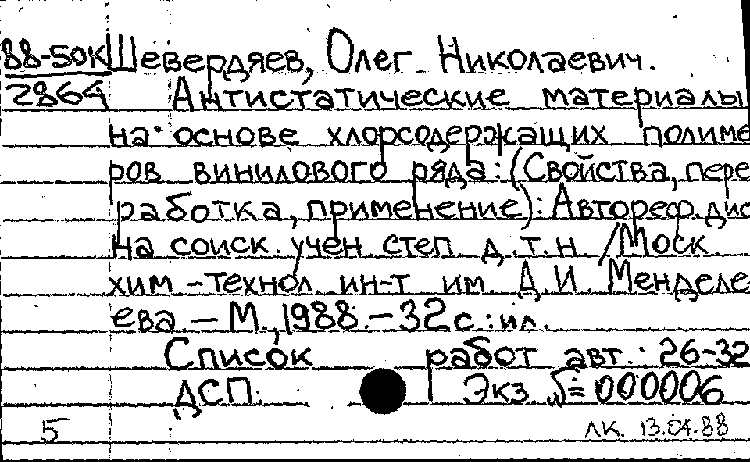 88-50К Шевердяев, Олег Николаевич.
2864 Антистатические материалы
на основе хлорсодержащих полиме
ров винилового ряда: (Свойства, пере
работка, применение): Автореф. дис
на соиск. учен степ д.т.н /Моск
хим-технол ин-т им. Д.И. Менделе
ева. — М., 1988. — 32с.: ил.
Список работ авт.: 26-32
ДСП. Экз №= 000006
5 ЛК. 13.04.88